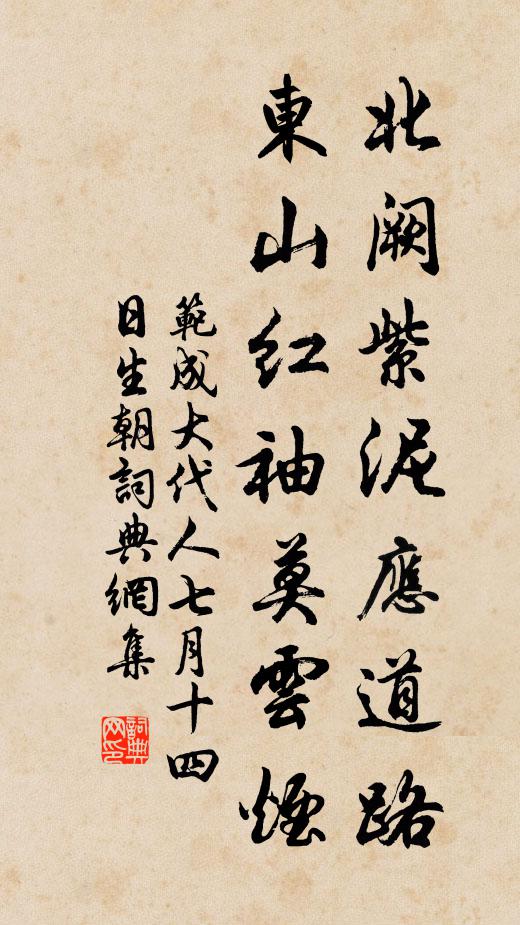 北阙紫泥應道路
東山红袖莫雲煙
範成大代人七月十四
日生朝詞典網集
詞典网印